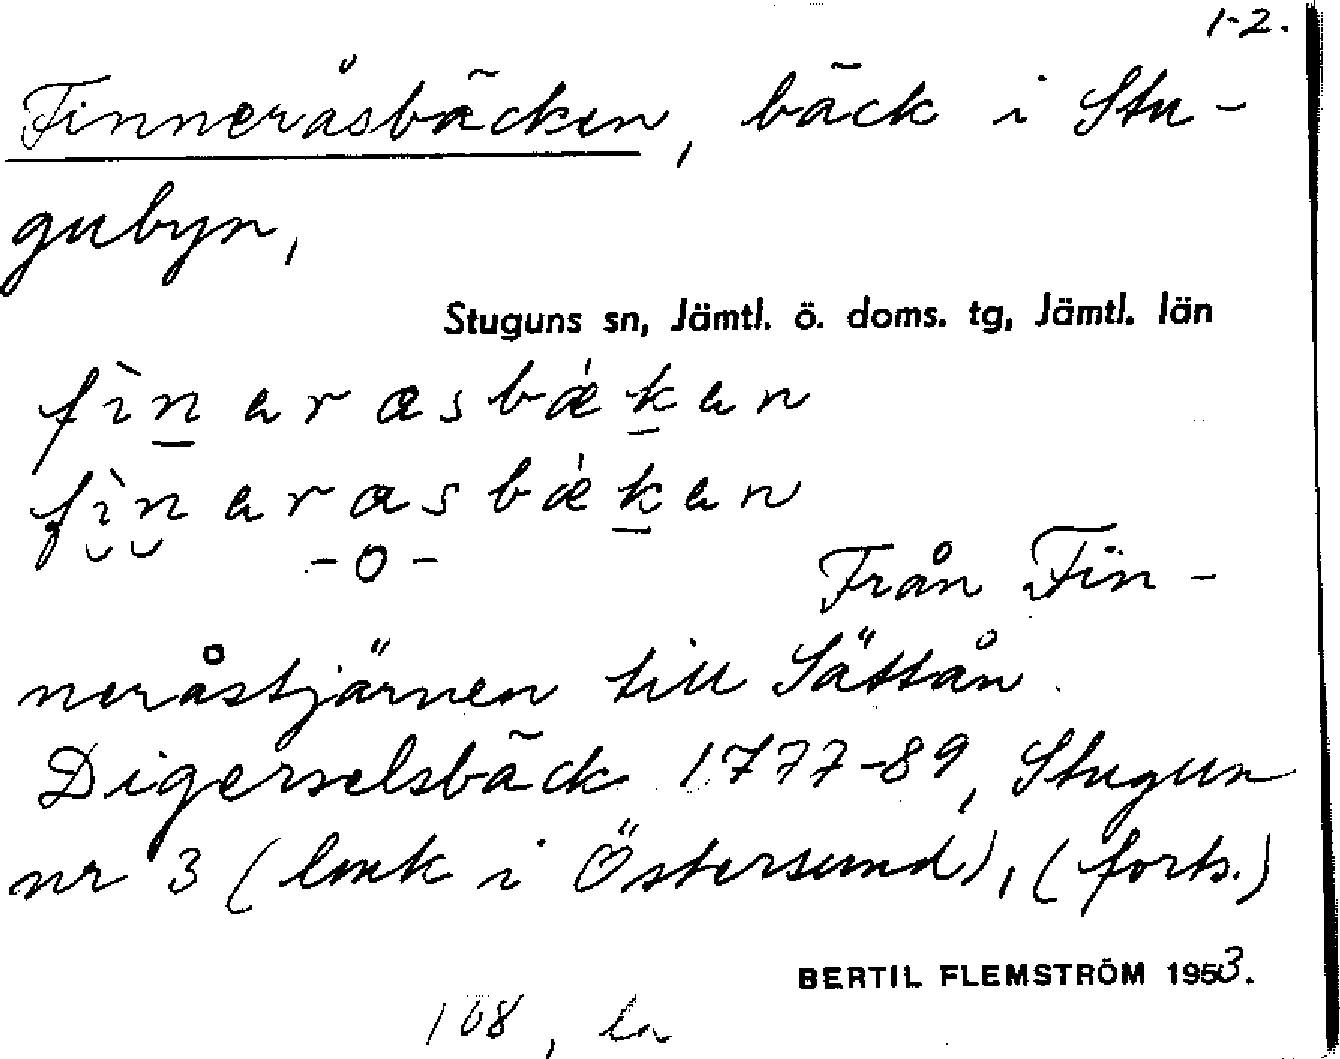 1-2.
Finneråsbäcken, bäck i Stu-
gubyn,
Stuguns sn, Jämtl. ö. doms. tg, Jämtl. län
fìnarasbǽkan
fìnarasbǽkan
-o-
Från Fin-
neråstjärnen till Sättån.
Digerselsbäck 1777-89, Stugun
nr 3 (lmk i Östersund), (forts.)
BERTIL FLEMSTRÖM 1953.
108,